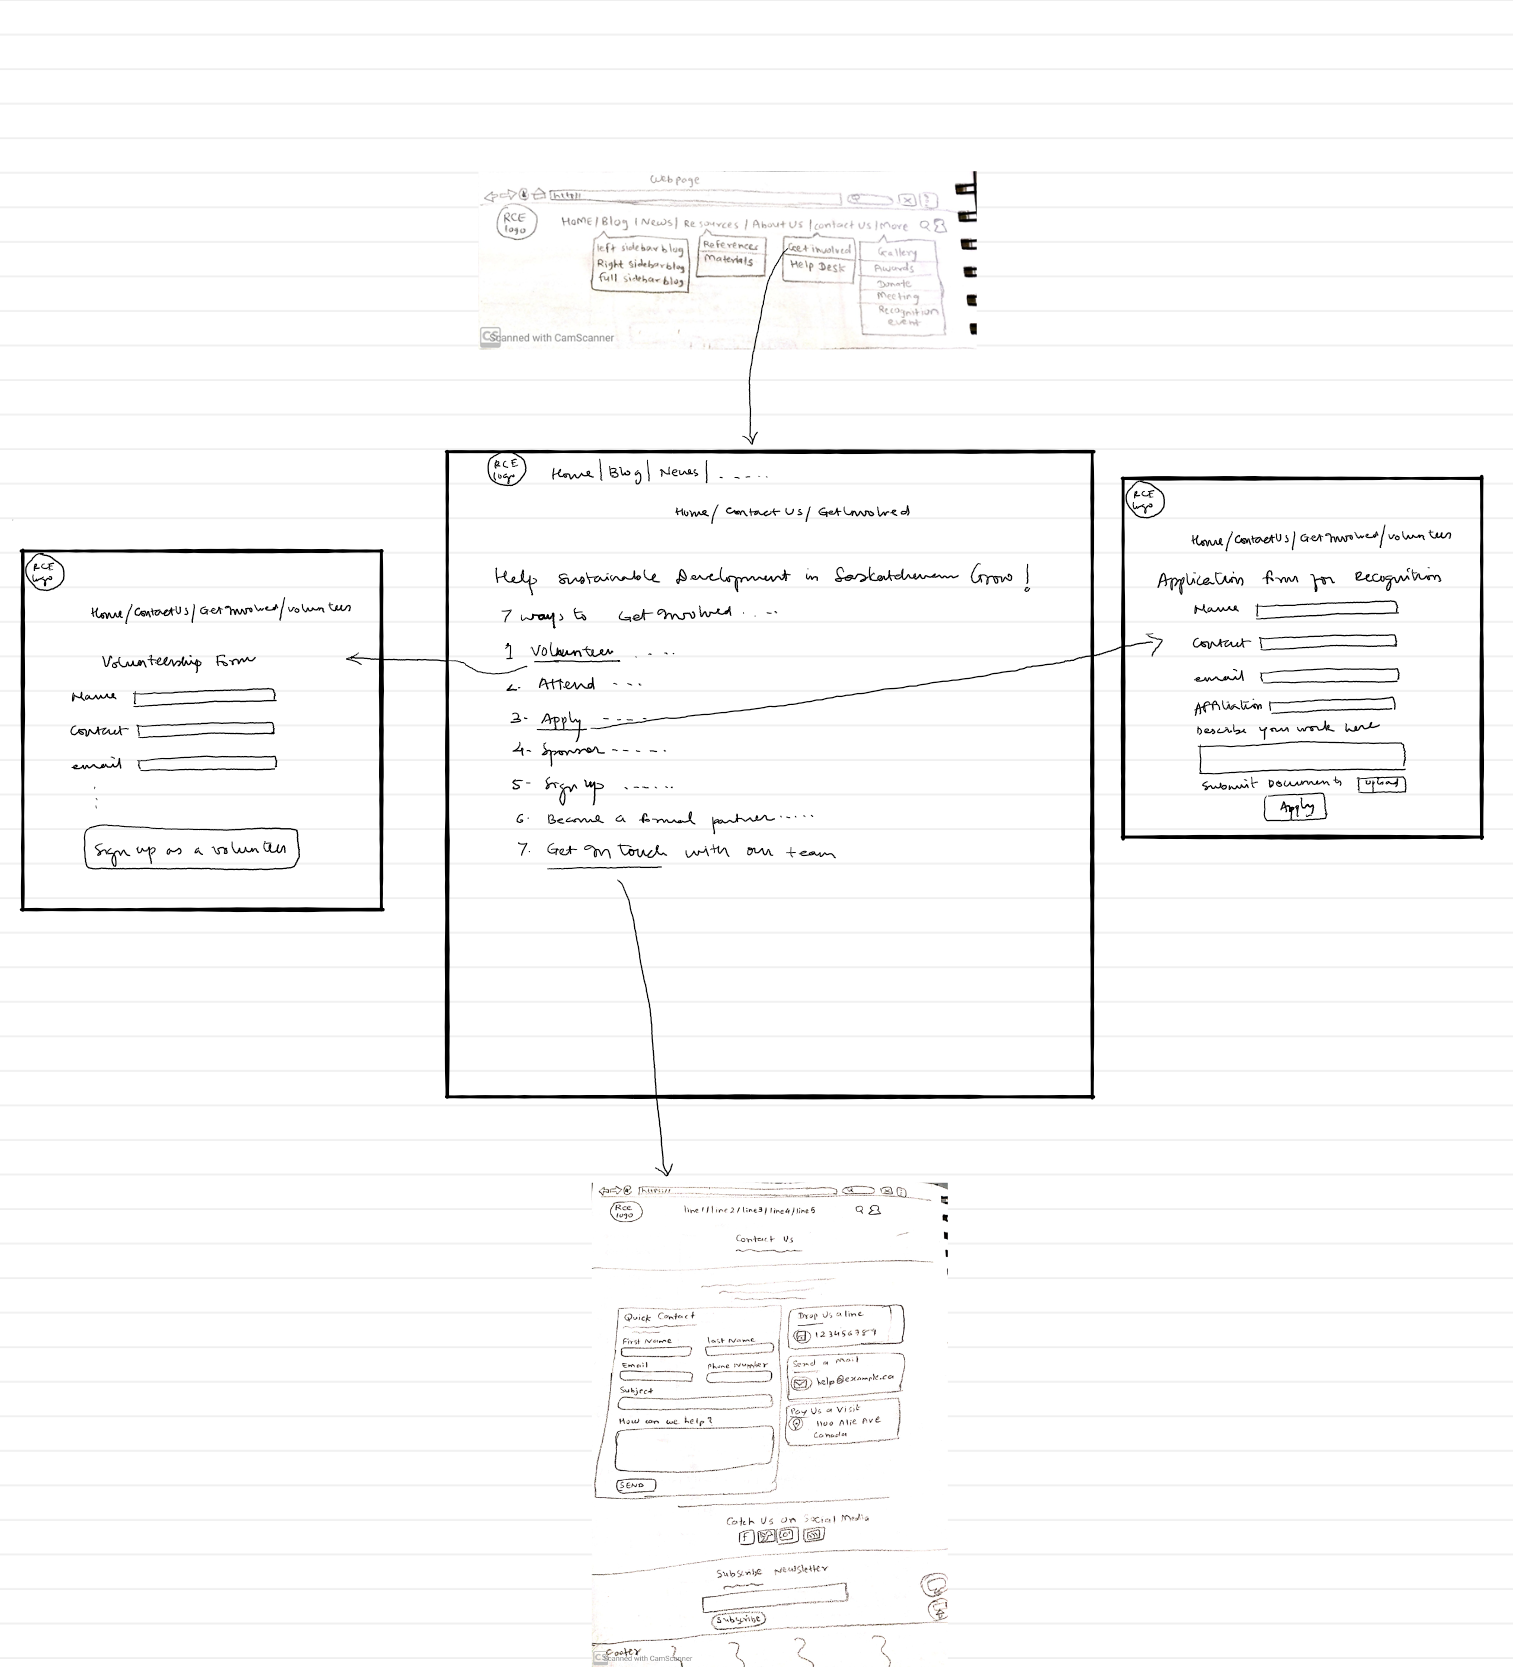 Webpage
http://
RCE
logo
HOME/Blog/News/Resources/About Us/contact us/More
left sidebar blog
Right sidebar blog
full sidebar blog
References
Materials
Get involved
Help Desk
Gallery
Awards
Donate
Meeting
Recognition
event
CS Scanned with CamScanner
RCE
logo
Home|Blog|News|......
Home/ Contact Us/ Get Involved
Help sustainable Development in Saskatchewan Grow!
7 ways to Get Involved....
1 Volunteer ....
2. Attend ---
3- Apply ----
4- Sponsor -----
5- Sign up ......
6. Become a formal partner.....
7. Get In touch with our team
RCE
logo
Home/Contact Us/Get Involved/volunteer
Volunteership Form
Name
Contact
email
Sign up as a volunteer
RCE
logo
Home/Contact Us/Get Involved/volunteer
Application form for Recognition
Name
Contact
email
Affiliation
Describe your work here
Submit Documents upload
Apply
http://
Rce
logo
line1/line2/line3/line4/line5
Contact Us
Quick Contact
First Name last Name
Email Phone Number
Subject
How can we help?
SEND
Drop Us a line
123456789
Send a mail
help@example.ca
Pay Us a Visit
Ave
Canada
Catch Us on Social Media
Subscribe Newsletter
Subscribe
Footer
CS Scanned with CamScanner